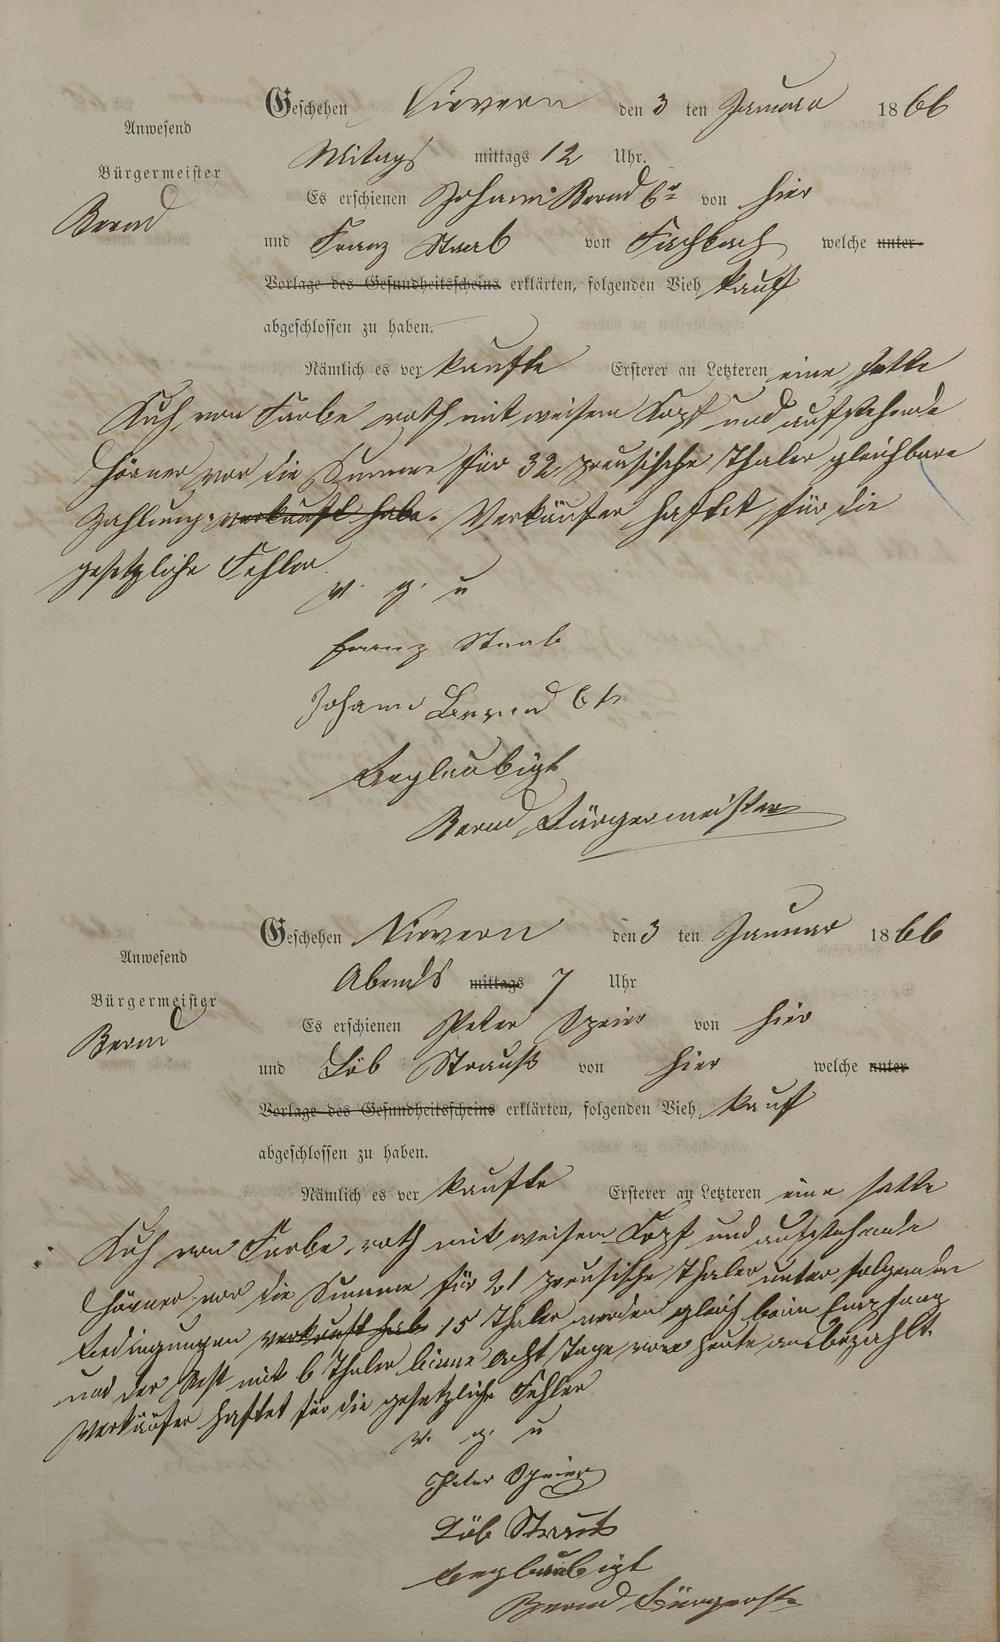 Geschehen Nievern den 3 ten Januar 1866
Anwesend
Mitags mittags 12 Uhr.
Bürgermeister
Bernd
Es erschienen Johann Bernd 6r von hier
und Franz Staab von Fachbach welche unter
Vorlage des Gesundheitsscheins erklärten, folgenden Vieh kauf
abgeschlossen zu haben.
Nämlich es ver kaufte Ersterer an Letzteren eine fette
Kuh von Farbe roth mit weisem Kopf und aufstehende
Hörner vor die Summe für 32 preusische Thaler gleichbare
Zahlung verkauft habe. Verkäufer haftet für die
gesetzliche Fehler.
v. g. u
Franz Staab
Johann Bernd 6t
Beglaubigt
Bernd Bürgermeister
Geschehen Nievern den 3 ten Januar 1866
Anwesend
Abends mittags 7 Uhr
Bürgermeister
Bernd
Es erschienen Peter Speier von hier
und Löb Strauß von hier welche unter
Vorlage des Gesundheitsscheins erklärten, folgenden Vieh kauf
abgeschlossen zu haben.
Nämlich es ver kaufte Ersterer an Letzteren eine fette
Kuh von Farbe roth mit weisem Kopf und aufstehende
Hörner vor die Summe für 21 preusische Thaler unter folgenden
Bedingungen verkauft hab 15 Thaler werden gleich beim Empfang
und der Rest mit 6 Thaler binne acht Tage von heute ausbezahlt.
Verkäufer haftet für die gesetzliche Fehler
v. g. u
Peter Speier
Löb Strauß
Beglaubigt
Bernd Bürgerst